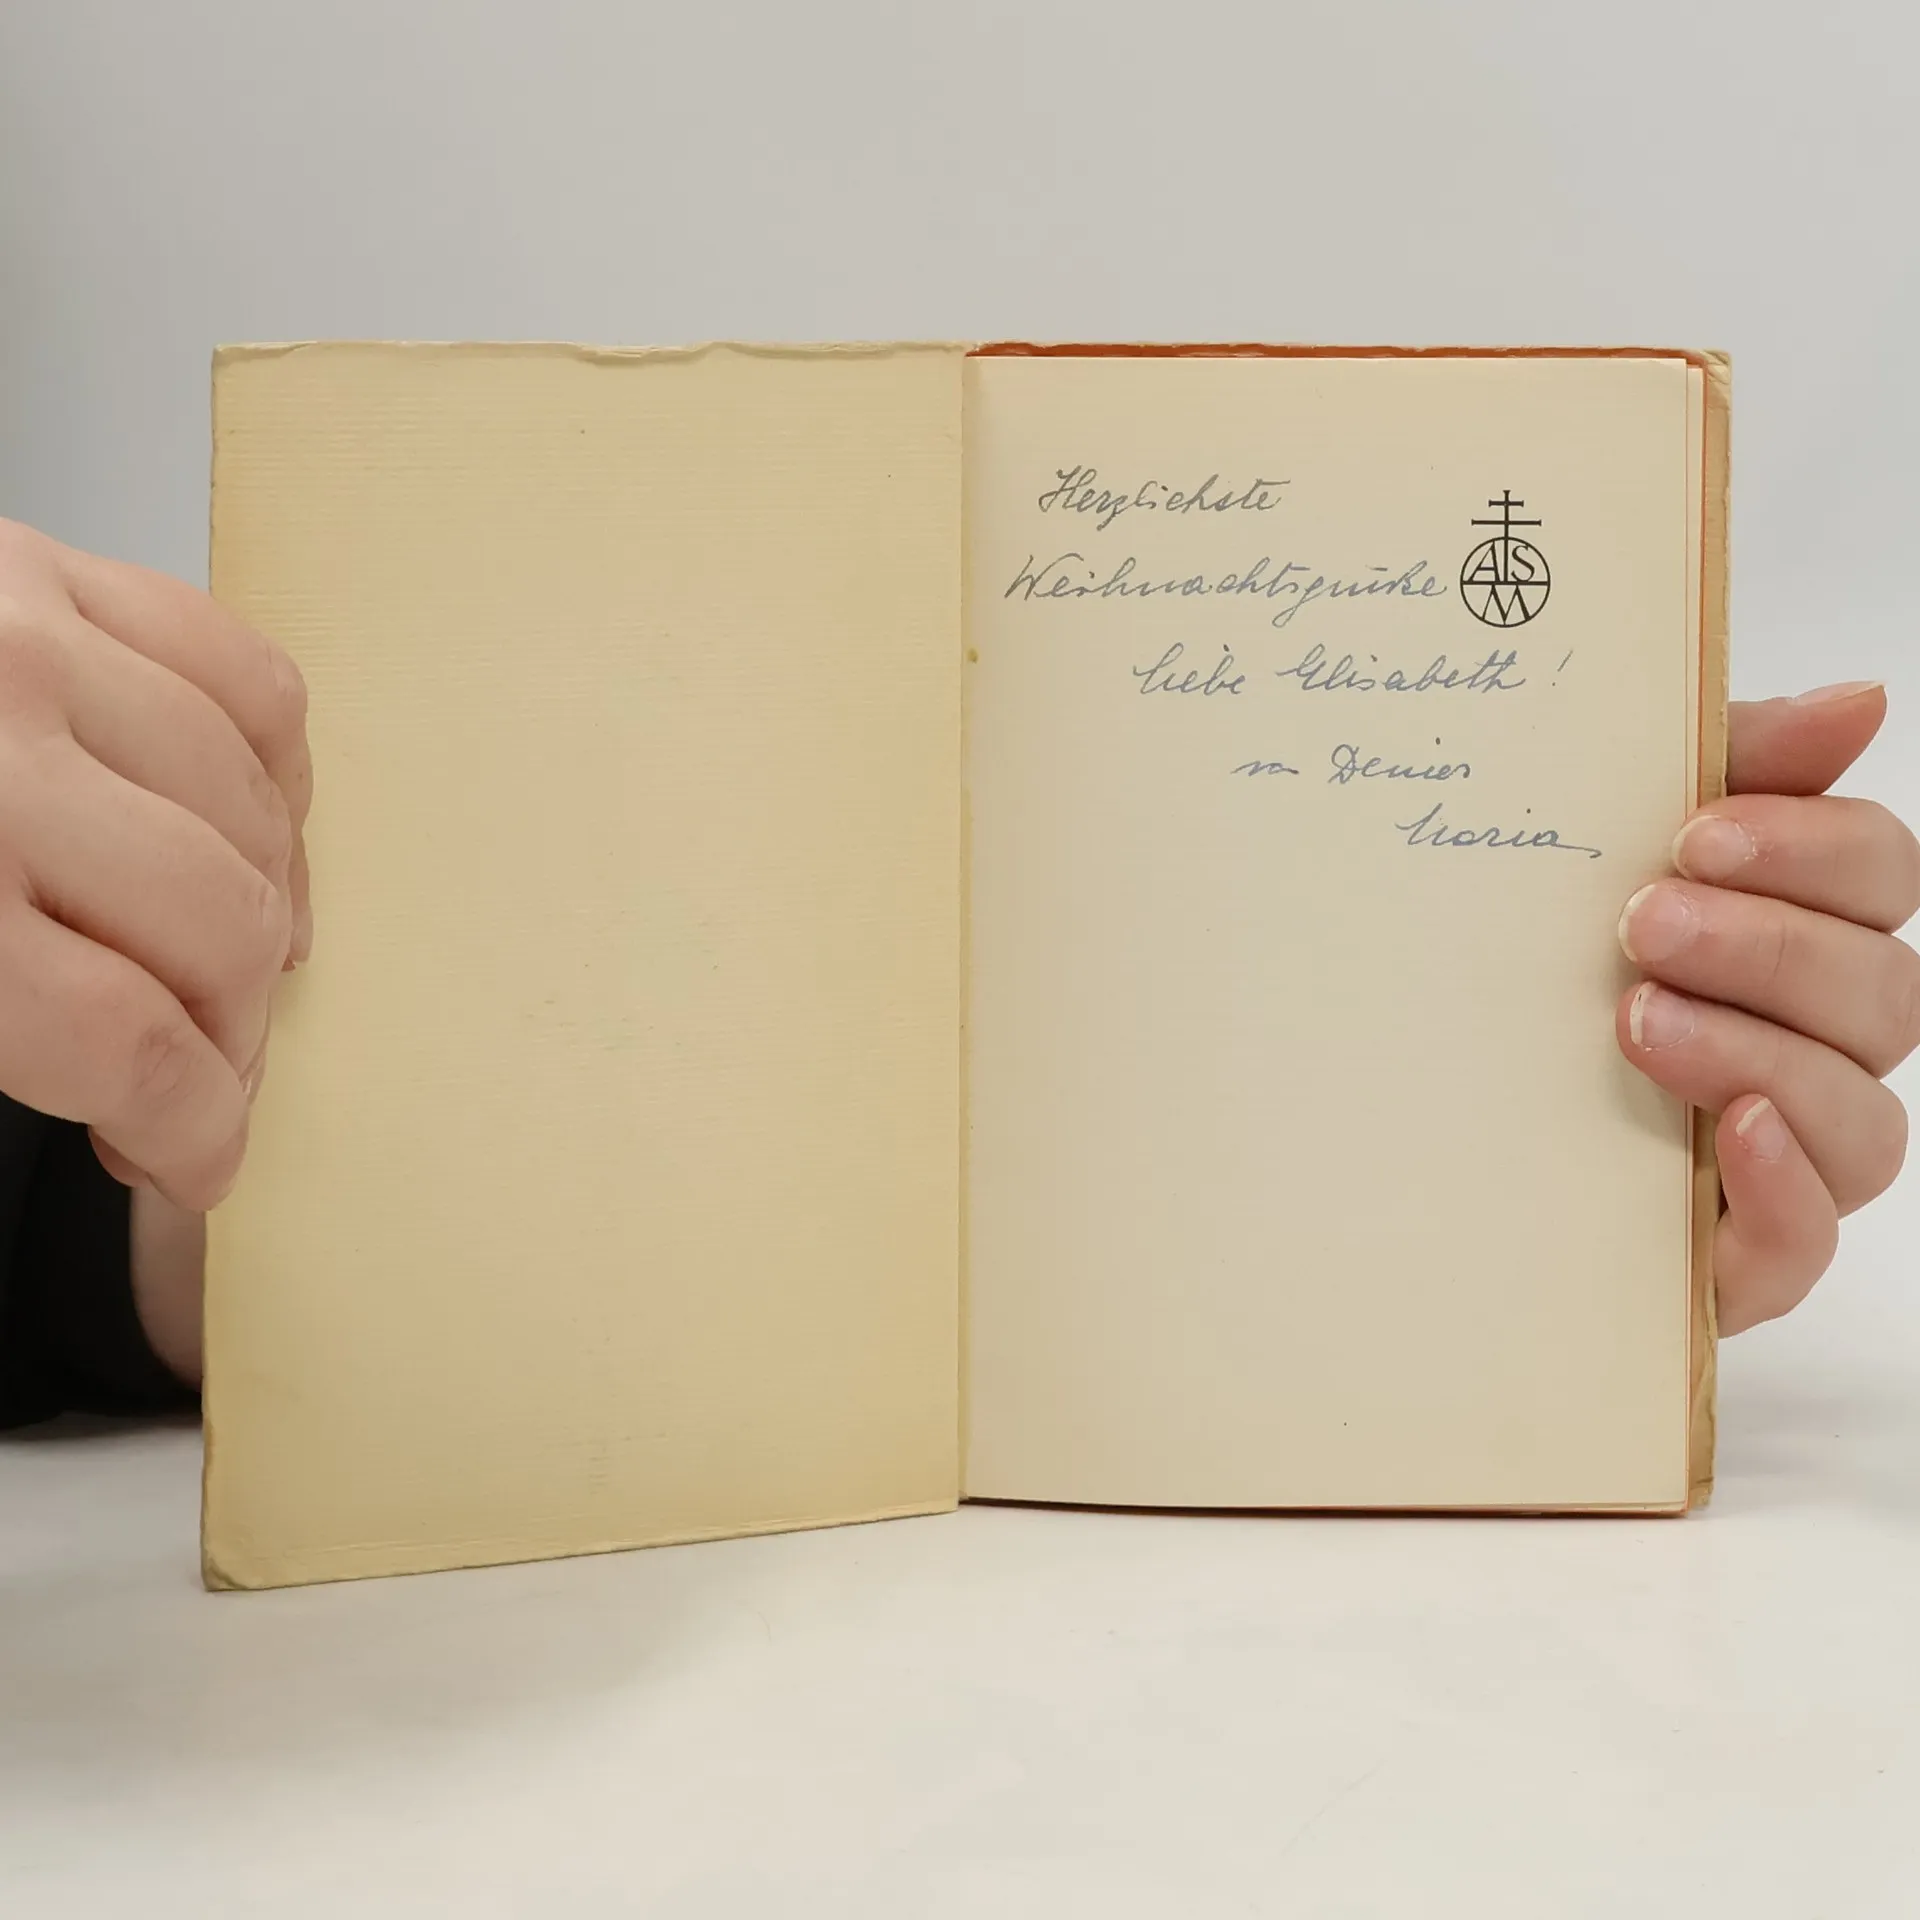 Herzlichste
Weihnachtsgrüße
ASM
liebe Elisabeth!
von Deiner
Maria